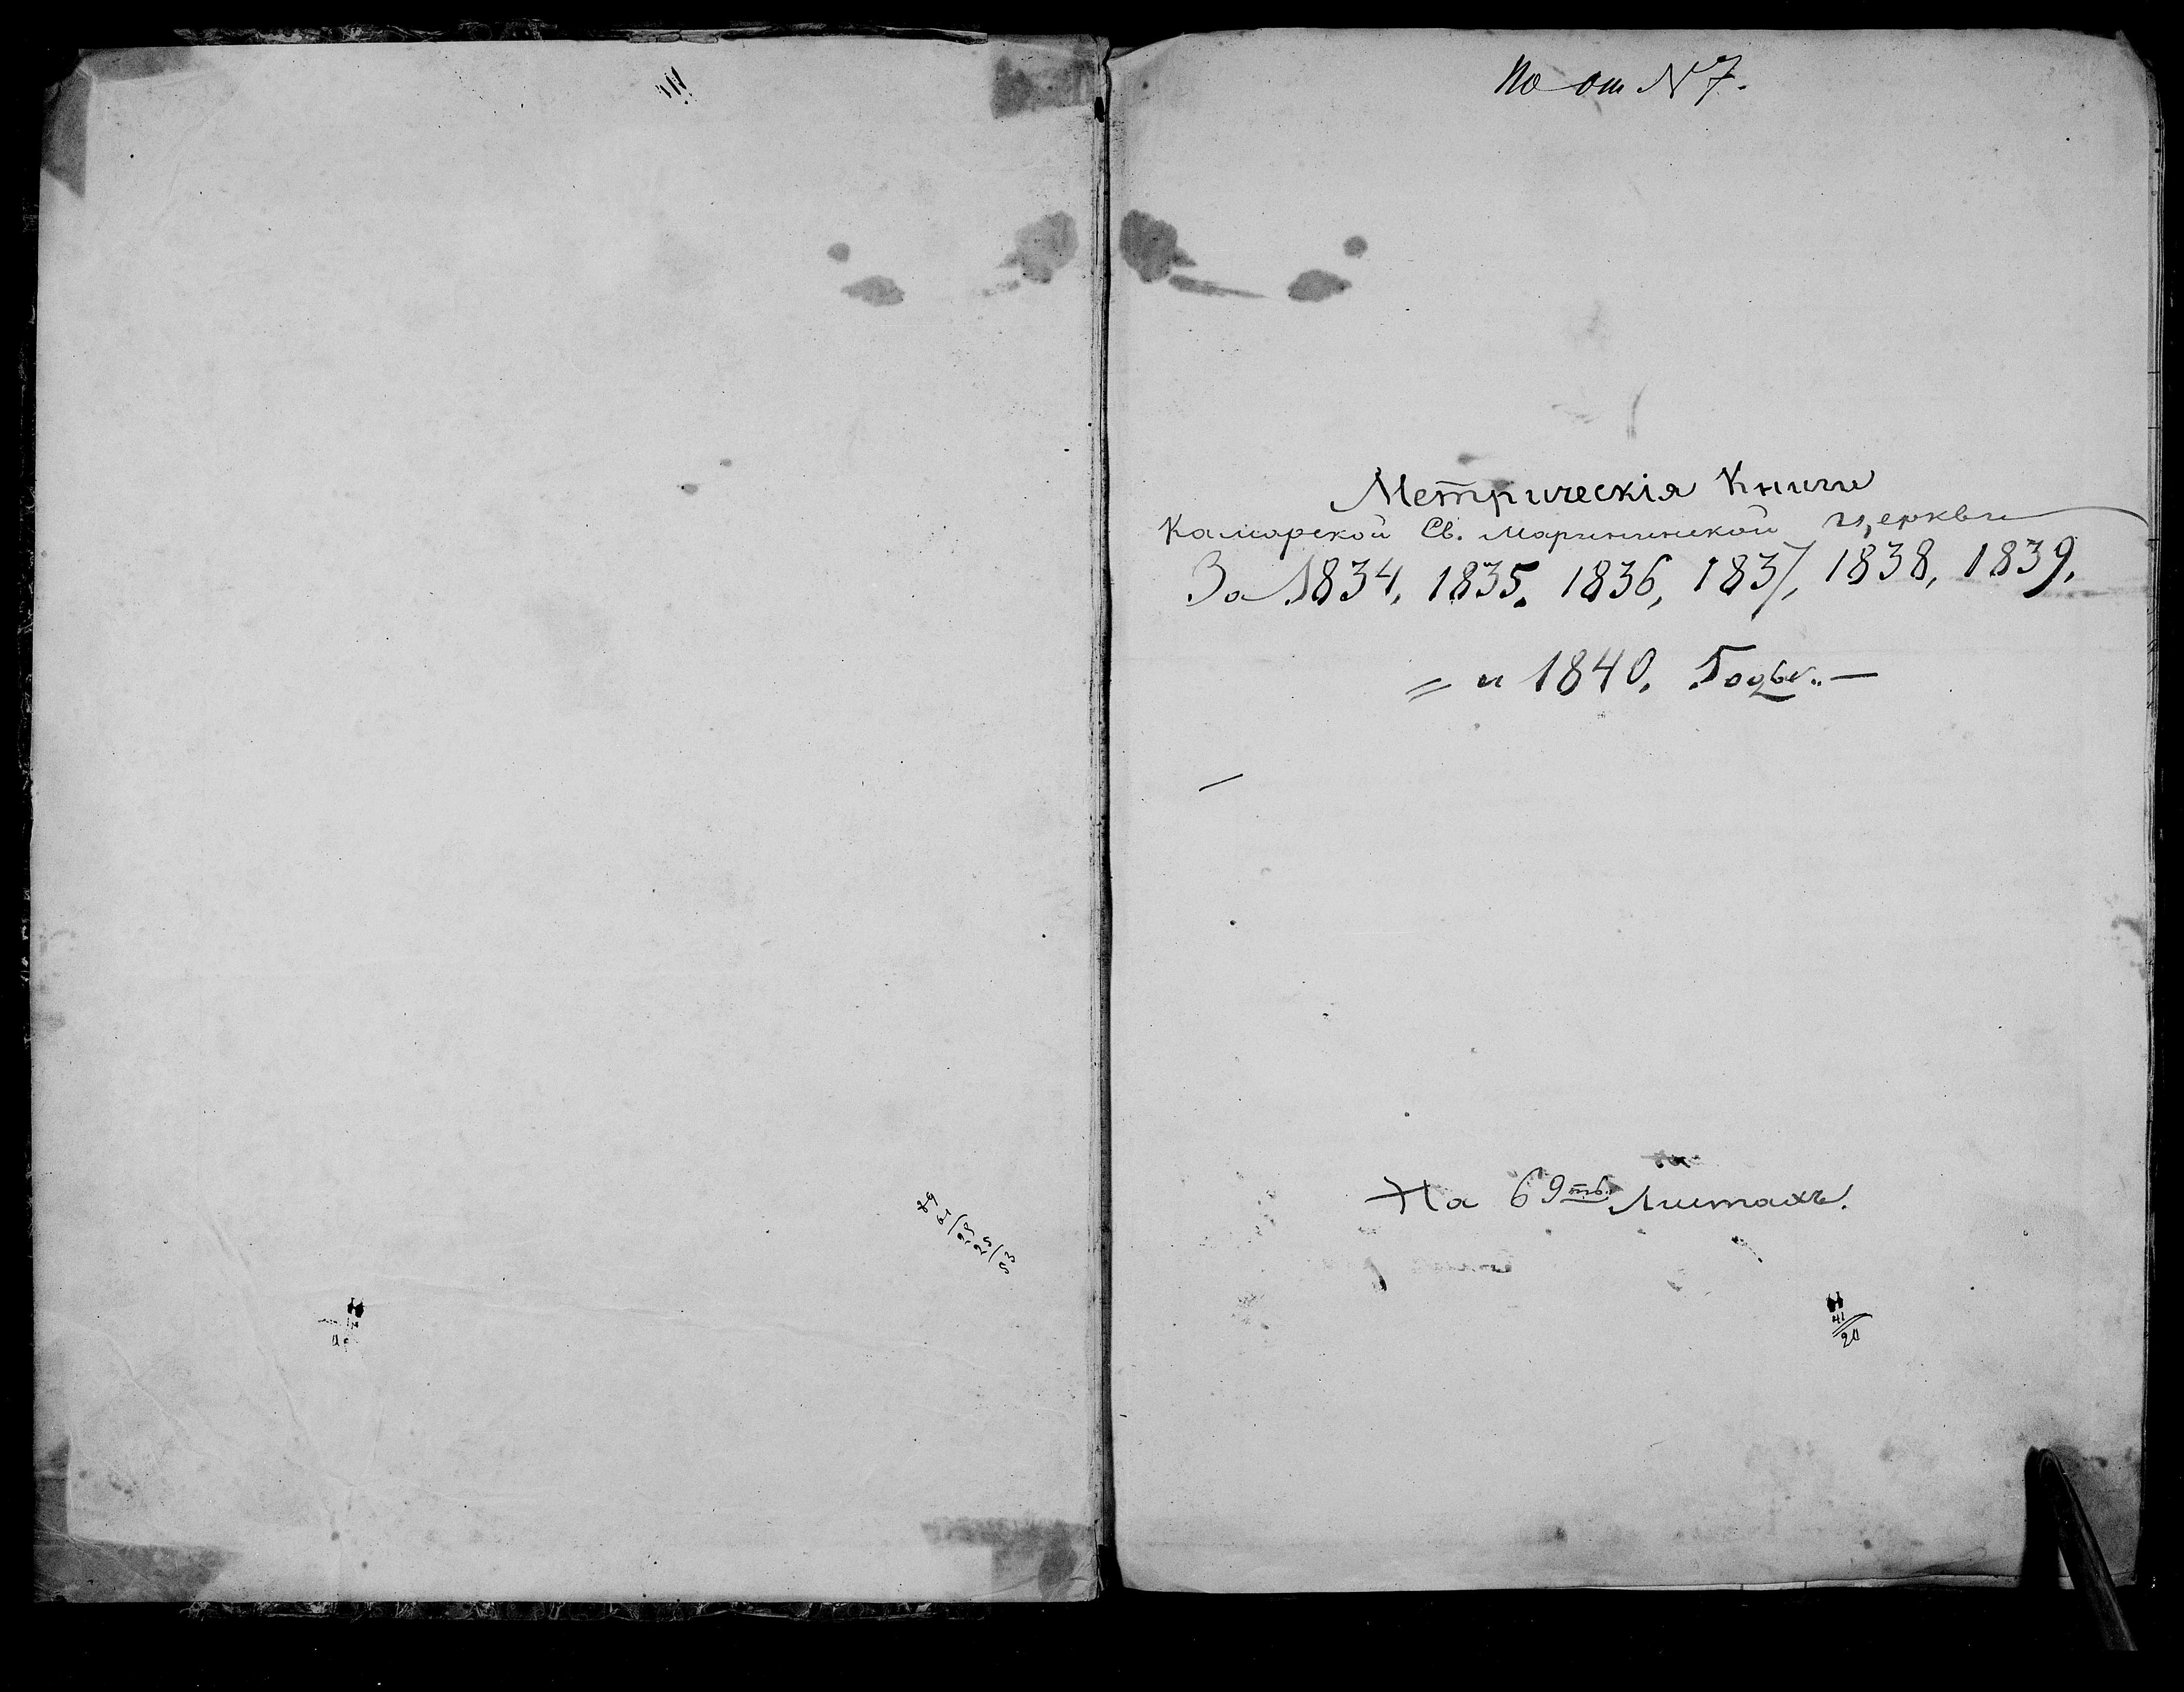 По оп N 7.
Метрическія Книги
Камарской Св. Марининской церкви
За 1834, 1835, 1836, 1837, 1838, 1839,
= и 1840. Годы. —
На 69ти листахъ.
41/20